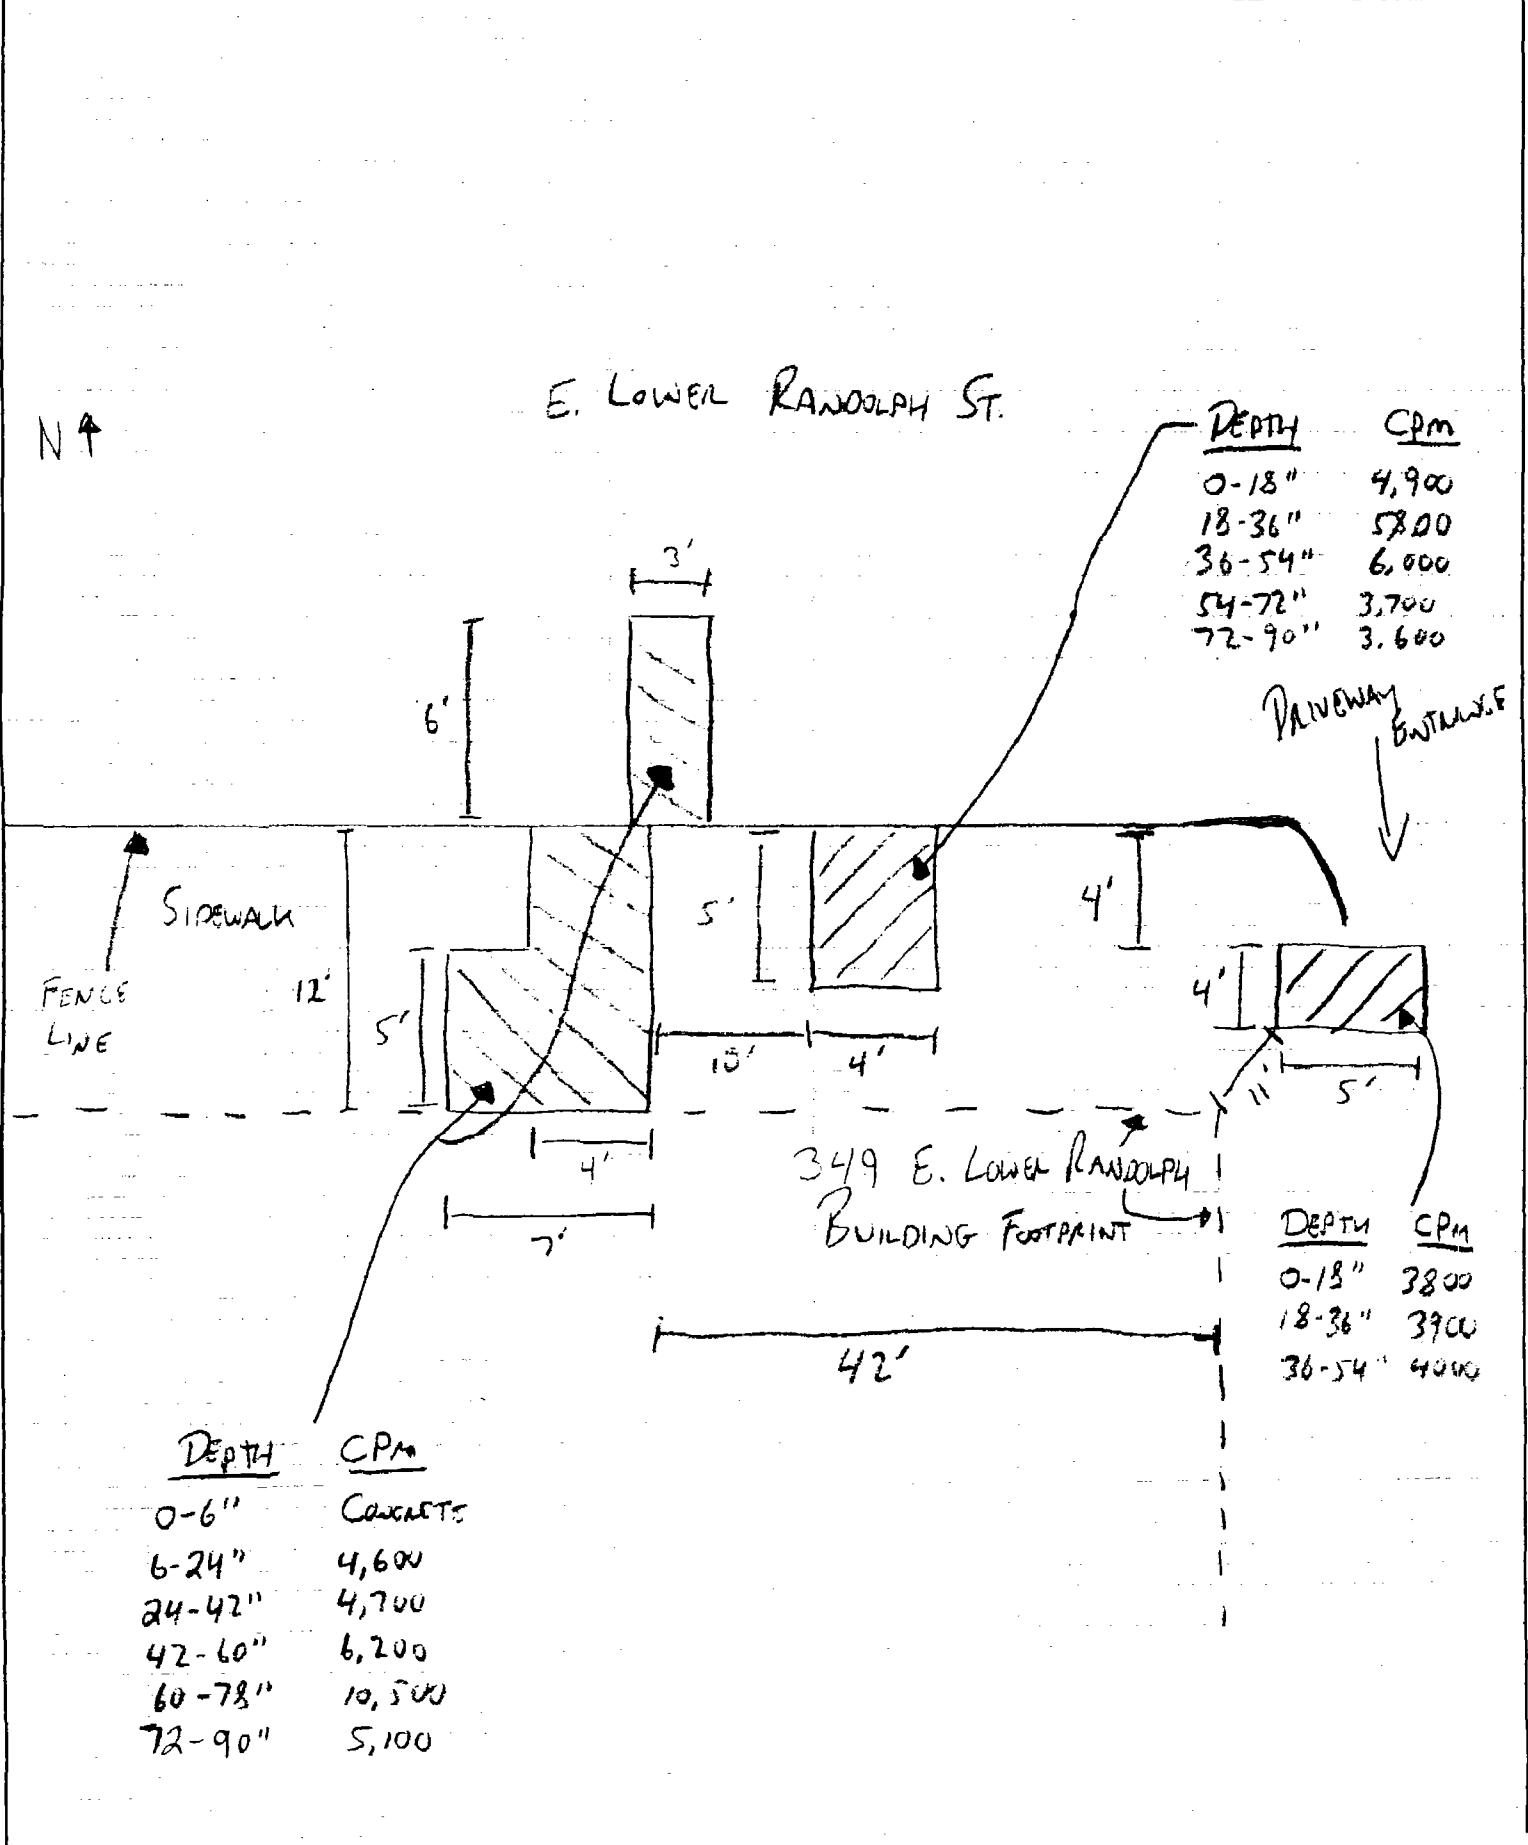 E. LOWER RANDOLPH ST.
N
DEPTH CPM
0-18" 4,900
18-36" 5800
36-54" 6,000
54-72" 3,700
72-90" 3.600
3'
6'
DRIVEWAY
ENTRANCE
SIDEWALK
FENCE
LINE
12'
5'
5'
4'
4'
10'
4'
11'
5'
4'
7'
349 E. LOWER RANDOLPH
BUILDING FOOTPRINT
42'
DEPTH CPM
0-18" 3800
18-36" 3900
36-54" 4000
DEPTH CPM
0-6" CONCRETE
6-24" 4,600
24-42" 4,700
42-60" 6,200
60-78" 10,500
72-90" 5,100